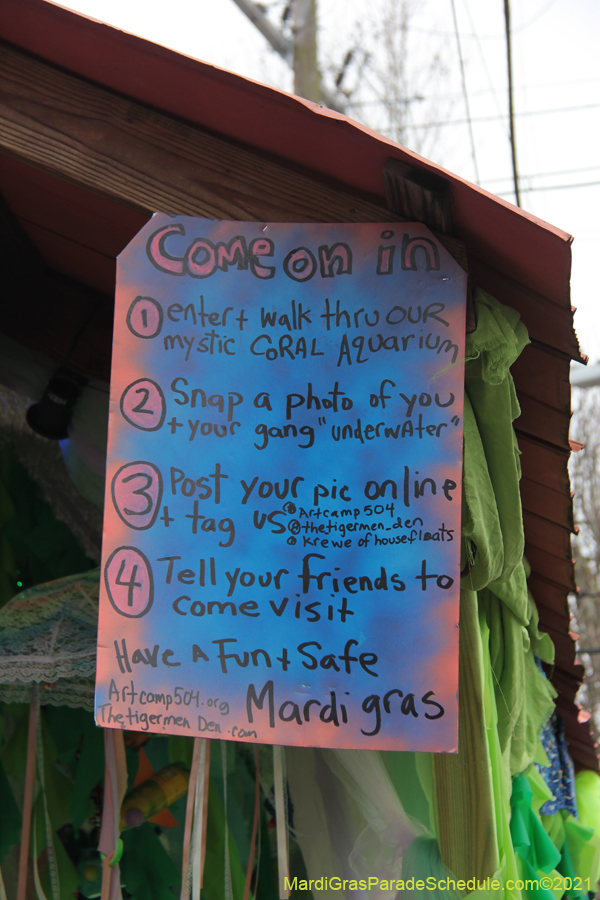 Come on in
1 enter + walk thru OUR
mystic CORAL AQuarium
2 Snap a photo of you
+ your gang "underwAter"
3 Post your pic online
+ tag us @Artcamp504
@thetigermen_den
@krewe of housefloats
4 Tell your friends to
come visit
Have A Fun + Safe
Mardi gras
Artcamp504.org
Thetigermen Den.com
MardiGrasParadeSchedule.com©2021